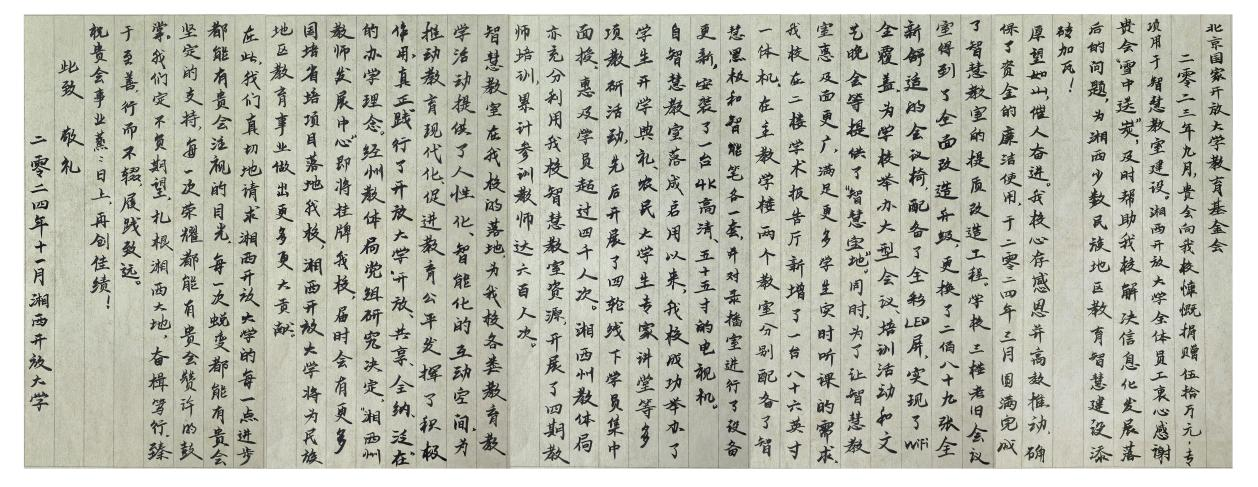 北京国家开放大学教育基金会
二零二三年九月，贵会向我校慷慨捐赠伍拾万元，专
项用于智慧教室建设。湘西开放大学全体员工衷心感谢
贵会“雪中送炭”，及时帮助我校解决信息化发展落
后的问题，为湘西少数民族地区教育智慧建设添
砖加瓦！
厚望如山，催人奋进。我校心存感恩并高效推动，确
保了资金的廉洁使用，于二零二四年三月圆满完成
了智慧教室的提质改造工程。学校三楼老旧会议
室得到了全面改造升级，更换了二佰八十九张全
新舒适的会议椅，配备了全彩LED屏，实现了WiFi
全覆盖，为学校举办大型会议、培训活动和文
艺晚会等提供了“智慧宝地”。同时，为了让智慧教
室惠及面更广，满足更多学生实时听课的需求，
我校在二楼学术报告厅新增了一台八十六英寸
一体机，在主教学楼两个教室分别配备了智
慧黑板和智能笔各一套，并对录播室进行了设备
更新，安装了一台4K高清、五十五寸的电视机。
自智慧教室落成启用以来，我校成功举办了
学生开学典礼、农民大学生专家讲堂等多
项教研活动，先后开展了四轮线下学员集中
面授，惠及学员超过四千人次。湘西州教体局
亦充分利用我校智慧教室资源，开展了四期教
师培训，累计参训教师达六百人次。
智慧教室在我校的落地，为我校各类教育教
学活动提供了人性化、智能化的互动空间，为
推动教育现代化、促进教育公平发挥了积极
作用，真正践行了开放大学“开放、共享、全纳、泛在”
的办学理念。经州教体局党组研究决定，“湘西州
教师发展中心”即将挂牌我校，届时会有更多
国培省培项目落地我校，湘西开放大学将为民族
地区教育事业做出更多更大贡献。
在此，我们真切地请求湘西开放大学的每一点进步
都能有贵会注视的目光，每一次蜕变都能有贵会
坚定的支持，每一次荣耀都能有贵会赞许的鼓
掌。我们定不负期望，扎根湘西大地，奋楫笃行，臻
于至善，行而不辍，履践致远。
祝贵会事业蒸蒸日上，再创佳绩！
此致 敬礼
二零二四年十一月湘西开放大学